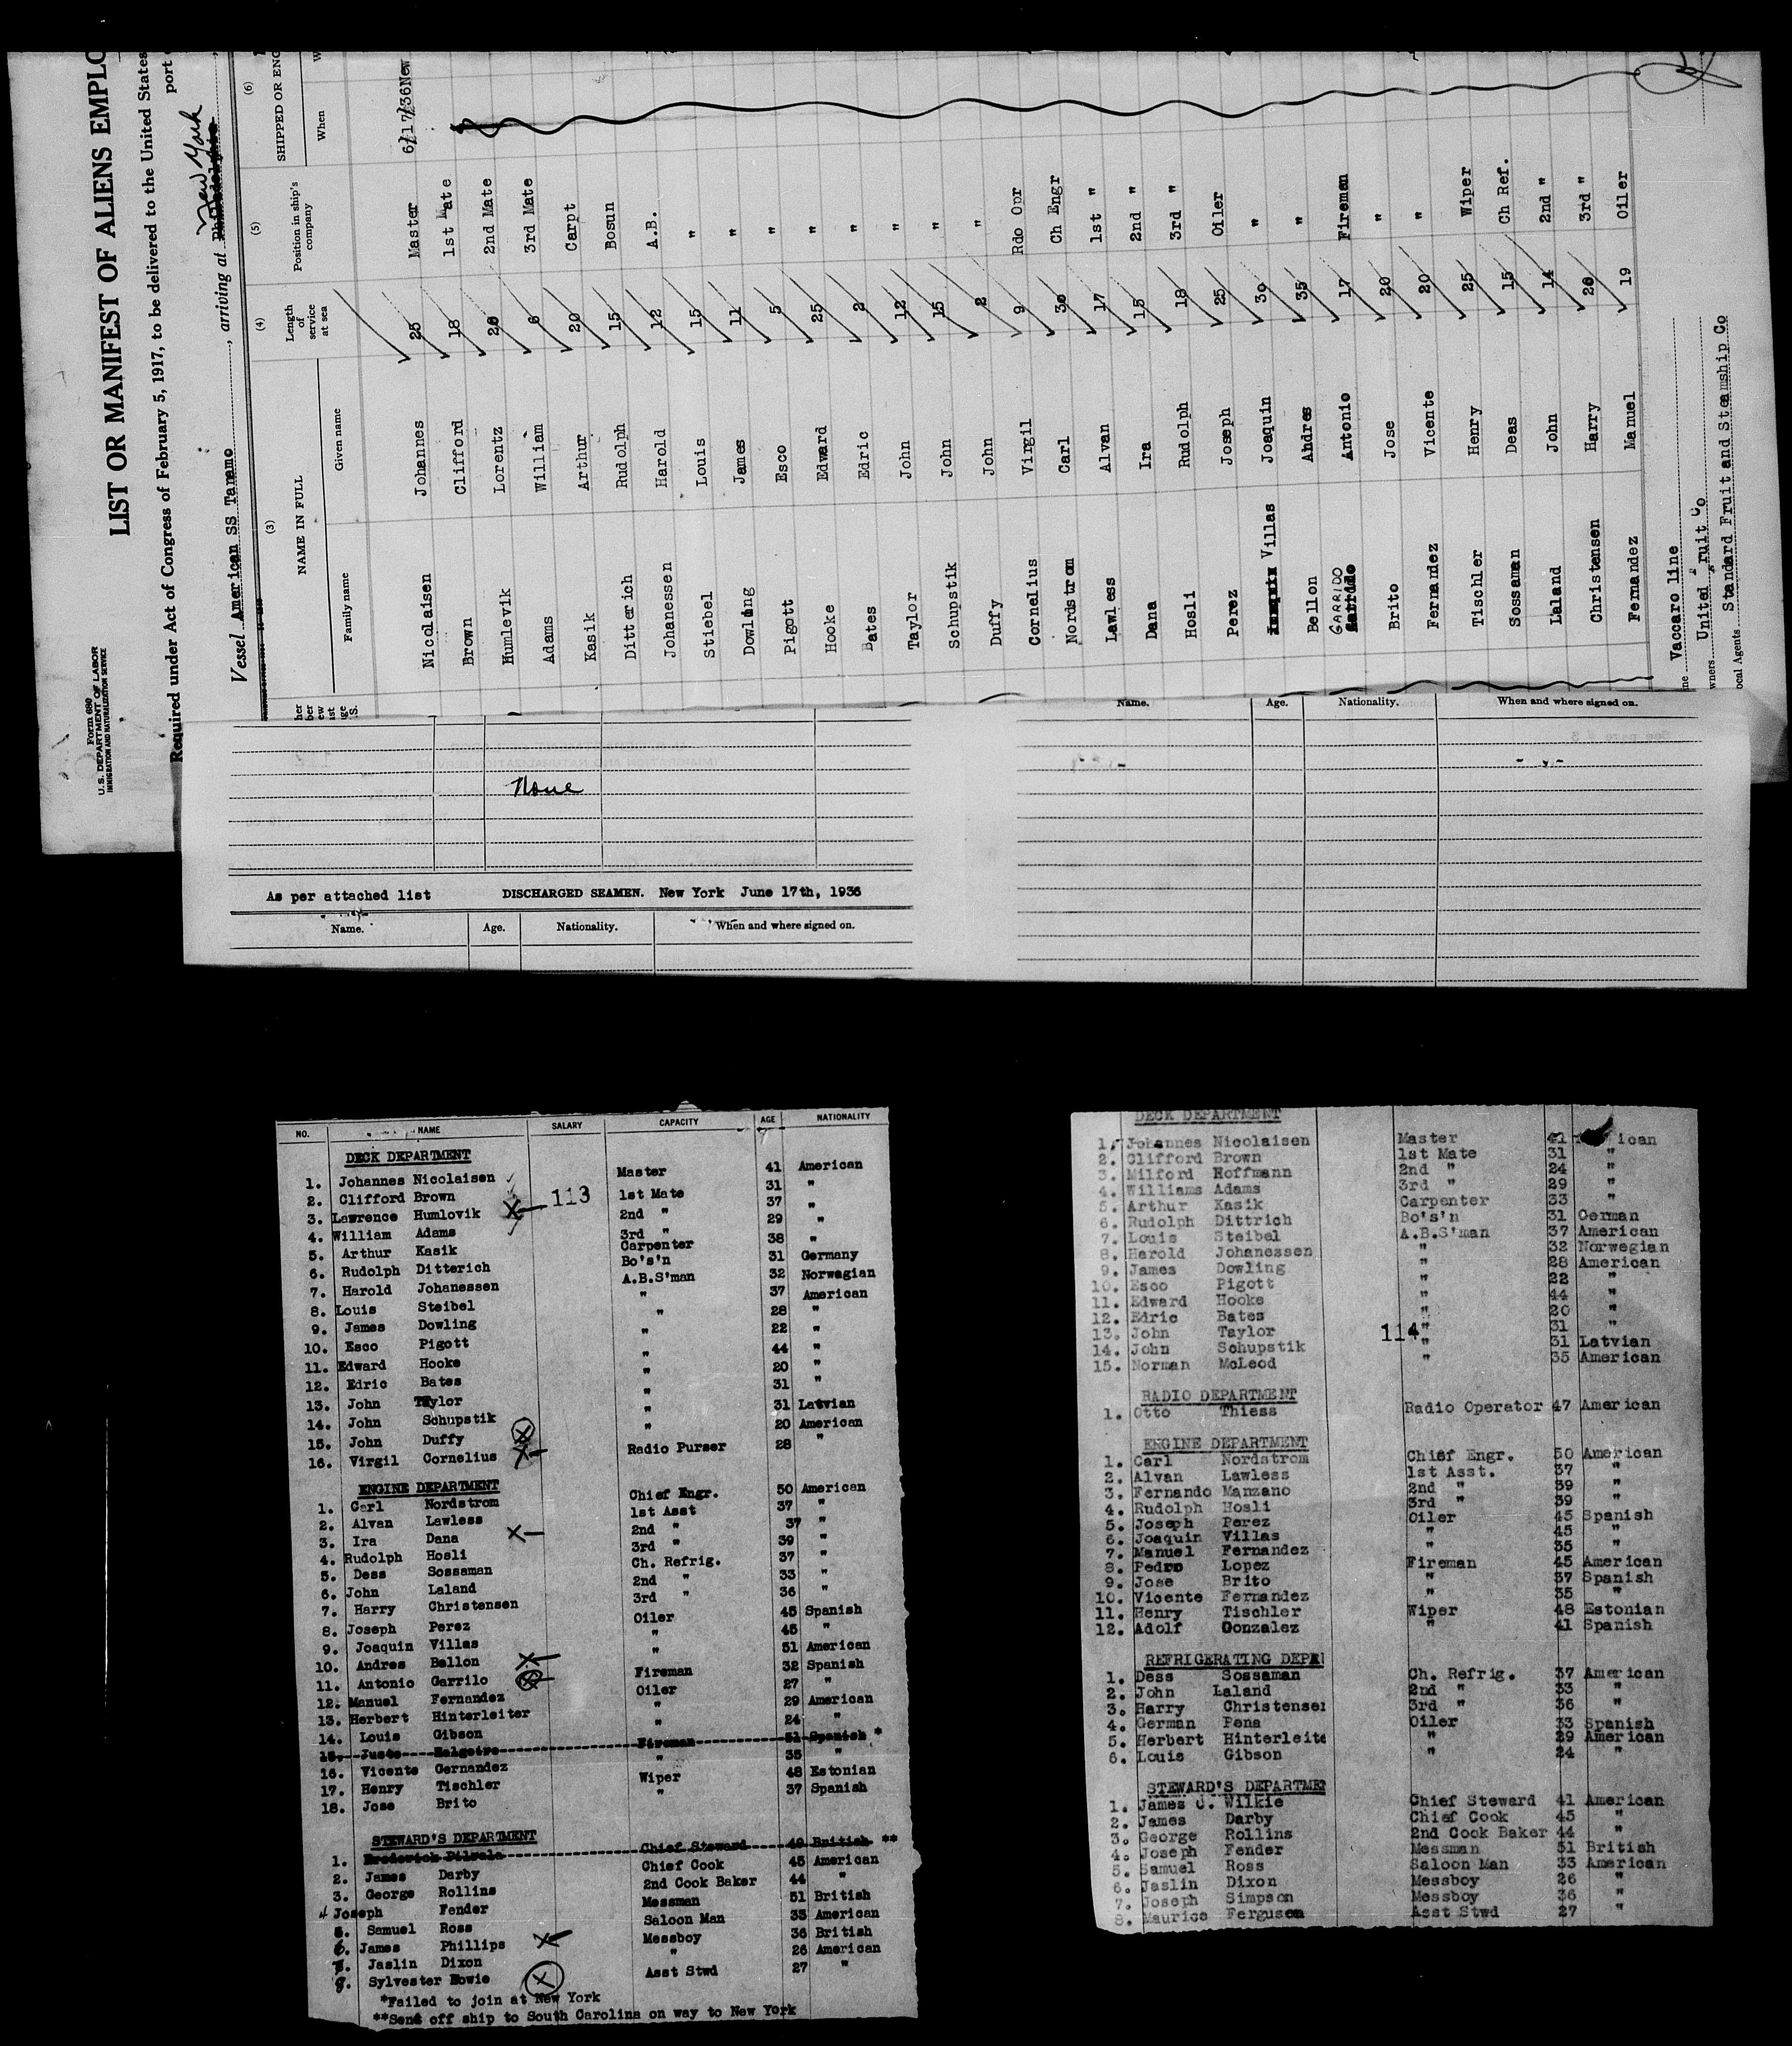 Form 680
U. S. DEPARTMENT OF LABOR
IMMIGRATION AND NATURALIZATION SERVICE
LIST OR MANIFEST OF ALIENS EMPLO
Required under Act of Congress of February 5, 1917, to be delivered to the United States
port
Vessel American SS Tanamo, arriving at Philadelphia New York
(3) (4) (5) (6)
NAME IN FULL Length of service at sea Position in ship's company SHIPPED OR ENG
Family name Given name When W
Nicolaisen Johannes 25 Master 6/17/36 New
Brown Clifford 18 1st Mate
Humlevik Lorentz 20 2nd Mate
Adams William 6 3rd Mate
Kasik Arthur 20 Carpt
Ditterich Rudolph 15 Bosun
Johanessen Harold 12 A.B.
Stiebel Louis 15 "
Dowling James 11 "
Pigott Esco 5 "
Hooke Edward 25 "
Bates Edric 2 "
Taylor John 12 "
Schupstik John 15 "
Duffy John 2 "
Cornelius Virgil 9 Rdo Opr
Nordstrom Carl 30 Ch Engr
Lawless Alvan 17 1st "
Dana Ira 15 2nd "
Hosli Rudolph 18 3rd "
Perez Joseph 25 Oiler
Villas Joaquin 30 "
Bellon Andres 35 "
GARRIDO Antonio 17 Fireman
Brito Jose 20 "
Fernandez Vicente 20 "
Tischler Henry 25 Wiper
Sossaman Deas 15 Ch Ref.
Laland John 14 2nd "
Christensen Harry 20 3rd "
Fernandez Manuel 19 Oiler
ne Vaccaro line
wners United Fruit Co
ocal Agents Standard Fruit and Steamship Co
her
ber
ew
ist
ge
S.
None
As per attached list DISCHARGED SEAMEN. New York June 17th, 1936
Name. Age. Nationality. When and where signed on.
Name. Age. Nationality. When and where signed on.
NO. NAME SALARY CAPACITY AGE NATIONALITY
DECK DEPARTMENT
1. Johannes Nicolaisen Master 41 American
2. Clifford Brown 1st Mate 31 "
3. Lawrence Humlovik X 113 2nd " 37 "
4. William Adams 3rd " 29 "
5. Arthur Kasik Carpenter 38 "
6. Rudolph Ditterich Bo's'n 31 Germany
7. Harold Johanessen A.B.S'man 32 Norwegian
8. Louis Steibel " 37 American
9. James Dowling " 28 "
10. Esco Pigott " 22 "
11. Edward Hooke " 44 "
12. Edric Bates " 20 "
13. John Taylor " 31 "
14. John Schupstik " 31 Latvian
15. John Duffy X " 20 American
16. Virgil Cornelius X Radio Purser 28 "
ENGINE DEPARTMENT
1. Carl Nordstrom Chief Engr. 50 American
2. Alvan Lawless 1st Asst 37 "
3. Ira Dana X 2nd " 37 "
4. Rudolph Hosli 3rd " 39 "
5. Dess Sossaman Ch. Refrig. 37 "
6. John Laland 2nd " 33 "
7. Harry Christensen 3rd " 36 "
8. Joseph Perez Oiler 45 Spanish
9. Joaquin Villas " 45 "
10. Andres Ballon X " 51 American
11. Antonio Garrilo X Fireman 32 Spanish
12. Manuel Fernandez Oiler 27 "
13. Herbert Hinterleiter " 29 American
14. Louis Gibson " 24 "
15. Juste Fireman 51 Spanish *
16. Vicente Gernandez " 35 "
17. Henry Tischler Wiper 48 Estonian
18. Jose Brito " 37 Spanish
STEWARD'S DEPARTMENT
1. Frederick Chief Steward 49 British **
2. James Darby Chief Cook 45 American
3. George Rollins 2nd Cook Baker 44 "
4 Joseph Fender Messman 51 British
5. Samuel Ross Saloon Man 33 American
6. James Phillips X Messboy 36 British
7. Jaslin Dixon " 26 American
8. Sylvester Bowie X Asst Stwd 27 "
*Failed to join at New York
**Send off ship to South Carolina on way to New York
DECK DEPARTMENT
1. Johannes Nicolaisen Master 41 ican
2. Clifford Brown 1st Mate 31 "
3. Milford Hoffmann 2nd " 24 "
4. Williams Adams 3rd " 29 "
5. Arthur Kasik Carpenter 33 "
6. Rudolph Dittrich Bo's'n 31 German
7. Louis Steibel A.B.S'man 37 American
8. Harold Johanessen " 32 Norwegian
9. James Dowling " 28 American
10. Esco Pigott " 22 "
11. Edward Hooke " 44 "
12. Edric Bates " 20 "
13. John Taylor 114 " 31 "
14. John Schupstik " 31 Latvian
15. Norman McLeod " 35 American
RADIO DEPARTMENT
1. Otto Thiess Radio Operator 47 American
ENGINE DEPARTMENT
1. Carl Nordstrom Chief Engr. 50 American
2. Alvan Lawless 1st Asst. 37 "
3. Fernando Manzano 2nd " 39 "
4. Rudolph Hosli 3rd " 39 "
5. Joseph Perez Oiler 45 Spanish
6. Joaquin Villas " 45 "
7. Manuel Fernandez " 35 "
8. Pedro Lopez Fireman 45 American
9. Jose Brito " 37 Spanish
10. Vicente Fernandez " 35 "
11. Henry Tischler Wiper 48 Estonian
12. Adolf Gonzalez " 41 Spanish
REFRIGERATING DEPA
1. Dess Sossaman Ch. Refrig. 37 American
2. John Laland 2nd " 33 "
3. Harry Christensen 3rd " 36 "
4. German Pena Oiler 33 Spanish
5. Herbert Hinterleite " 29 American
6. Louis Gibson " 24 "
STEWARD'S DEPARTMEN
1. James J. Wilkie Chief Steward 41 American
2. James Darby Chief Cook 45 "
3. George Rollins 2nd Cook Baker 44 "
4. Joseph Fender Messman 51 British
5. Samuel Ross Saloon Man 33 American
6. Jaslin Dixon Messboy 26 "
7. Joseph Simpson Messboy 36 "
8. Maurice Ferguson Asst Stwd 27 "